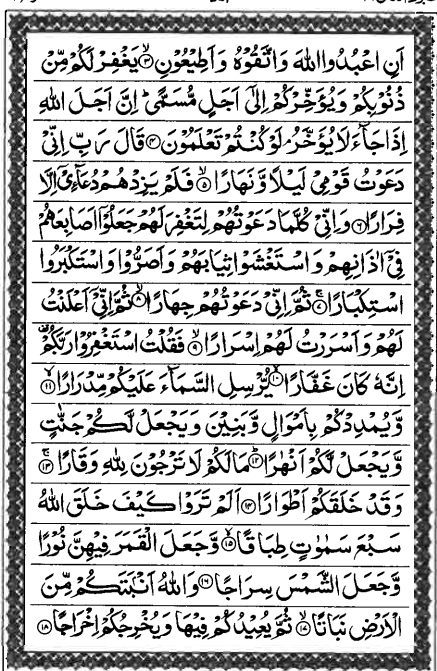 اَنِ اعْبُدُوا اللّٰهَ وَاتَّقُوْهُ وَاَطِيْعُوْنِ ۙ﴿۳﴾ يَغْفِرْ لَكُمْ مِّنْ
ذُنُوْبِكُمْ وَيُؤَخِّرْكُمْ اِلٰۤى اَجَلٍ مُّسَمًّى ؕ اِنَّ اَجَلَ اللّٰهِ
اِذَا جَآءَ لَا يُؤَخَّرُ ۘ لَوْ كُنْتُمْ تَعْلَمُوْنَ ﴿۴﴾ قَالَ رَبِّ اِنِّيْ
دَعَوْتُ قَوْمِيْ لَيْلًا وَّنَهَارًا ۙ﴿۵﴾ فَلَمْ يَزِدْهُمْ دُعَآءِيْۤ اِلَّا
فِرَارًا ﴿۶﴾ وَاِنِّيْ كُلَّمَا دَعَوْتُهُمْ لِتَغْفِرَ لَهُمْ جَعَلُوْۤا اَصَابِعَهُمْ
فِيْۤ اٰذَانِهِمْ وَاسْتَغْشَوْا ثِيَابَهُمْ وَاَصَرُّوْا وَاسْتَكْبَرُوا
اسْتِكْبَارًا ۚ﴿۷﴾ ثُمَّ اِنِّيْ دَعَوْتُهُمْ جِهَارًا ۙ﴿۸﴾ ثُمَّ اِنِّيْۤ اَعْلَنْتُ
لَهُمْ وَاَسْرَرْتُ لَهُمْ اِسْرَارًا ۙ﴿۹﴾ فَقُلْتُ اسْتَغْفِرُوْا رَبَّكُمْ ؕ
اِنَّهٗ كَانَ غَفَّارًا ۙ﴿۱۰﴾ يُّرْسِلِ السَّمَآءَ عَلَيْكُمْ مِّدْرَارًا ۙ﴿۱۱﴾
وَّيُمْدِدْكُمْ بِاَمْوَالٍ وَّبَنِيْنَ وَيَجْعَلْ لَّكُمْ جَنّٰتٍ
وَّيَجْعَلْ لَّكُمْ اَنْهٰرًا ؕ﴿۱۲﴾ مَا لَكُمْ لَا تَرْجُوْنَ لِلّٰهِ وَقَارًا ۚ﴿۱۳﴾
وَقَدْ خَلَقَكُمْ اَطْوَارًا ﴿۱۴﴾ اَلَمْ تَرَوْا كَيْفَ خَلَقَ اللّٰهُ
سَبْعَ سَمٰوٰتٍ طِبَاقًا ۙ﴿۱۵﴾ وَّجَعَلَ الْقَمَرَ فِيْهِنَّ نُوْرًا
وَّجَعَلَ الشَّمْسَ سِرَاجًا ﴿۱۶﴾ وَاللّٰهُ اَنْۢبَتَكُمْ مِّنَ
الْاَرْضِ نَبَاتًا ۙ﴿۱۷﴾ ثُمَّ يُعِيْدُكُمْ فِيْهَا وَيُخْرِجُكُمْ اِخْرَاجًا ﴿۱۸﴾